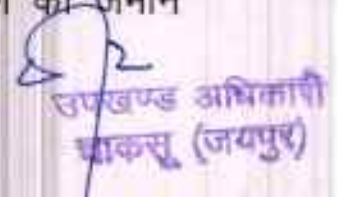 की जमीन
उपखण्ड अधिकारी
चाकसू (जयपुर)